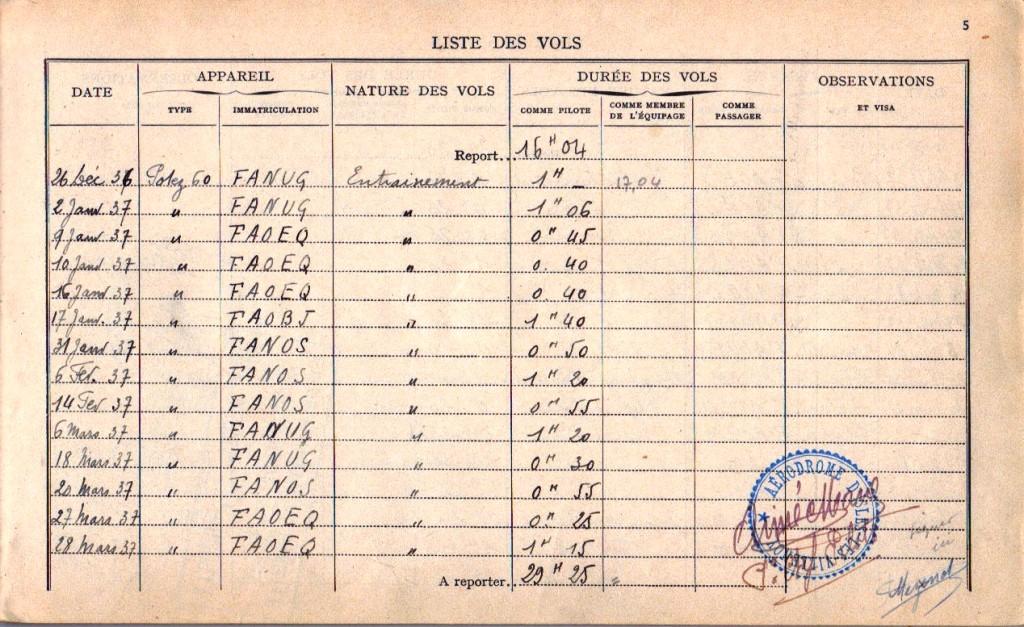 5
LISTE DES VOLS
DATE APPAREIL NATURE DES VOLS DURÉE DES VOLS OBSERVATIONS ET VISA
TYPE IMMATRICULATION COMME PILOTE COMME MEMBRE DE L'ÉQUIPAGE COMME PASSAGER
Report... 16 H 04
26 Déc. 36 Potez 60 FANUG Entrainement 1 H _ 17,04
2 Janv 37 " FANUG " 1 " 06
9 Janv. 37 " FAOEQ " 0 " 45
10 Janv 37 " FAOEQ " 0. 40
16 Janv 37 " FAOEQ " 0. 40
17 Janv. 37 " FAOBJ " 1 " 40
31 Janv 37 " FANOS " 0 " 50
6 Fev. 37 " FANOS " 1 H 20
14 Fev 37 " FANOS " 0 H 55
6 Mars 37 " FANUG " 1 H 20
18 Mars 37 " FANUG " 0 " 30
20 Mars 37 " FANOS " 0 " 55
27 Mars 37 " FAOEQ " 0 " 25
28 Mars 37 " FAOEQ " 1 H 15
A reporter... 29 H 25 "
AÉRODROME